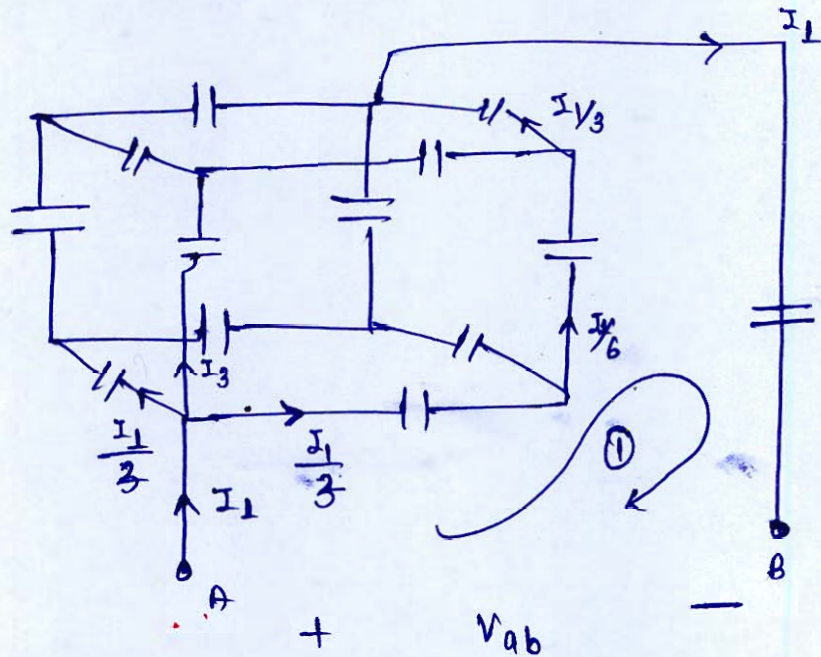 I1
I1/3
I1/6
I3
I1/3
I1/3
①
I1
A
B
+ Vab −